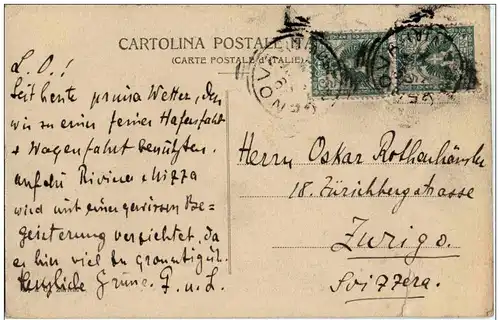 CARTOLINA POSTALE
(CARTE POSTALE D'ITALIE)
L. O.!
Seit heute prima Wetter, das
wir zu einer feinen Hafenfahrt
+ Wagenfahrt benützten.
Riviera + Nizza
wird mit einer gewissen Be-
geisterung verzichtet, da
es hier viel
Herzliche Grüsse. F. u. L.
Herrn Oskar Rothenhäusler
18. Zürichbergstrasse
Zurigo.
Svizzera.